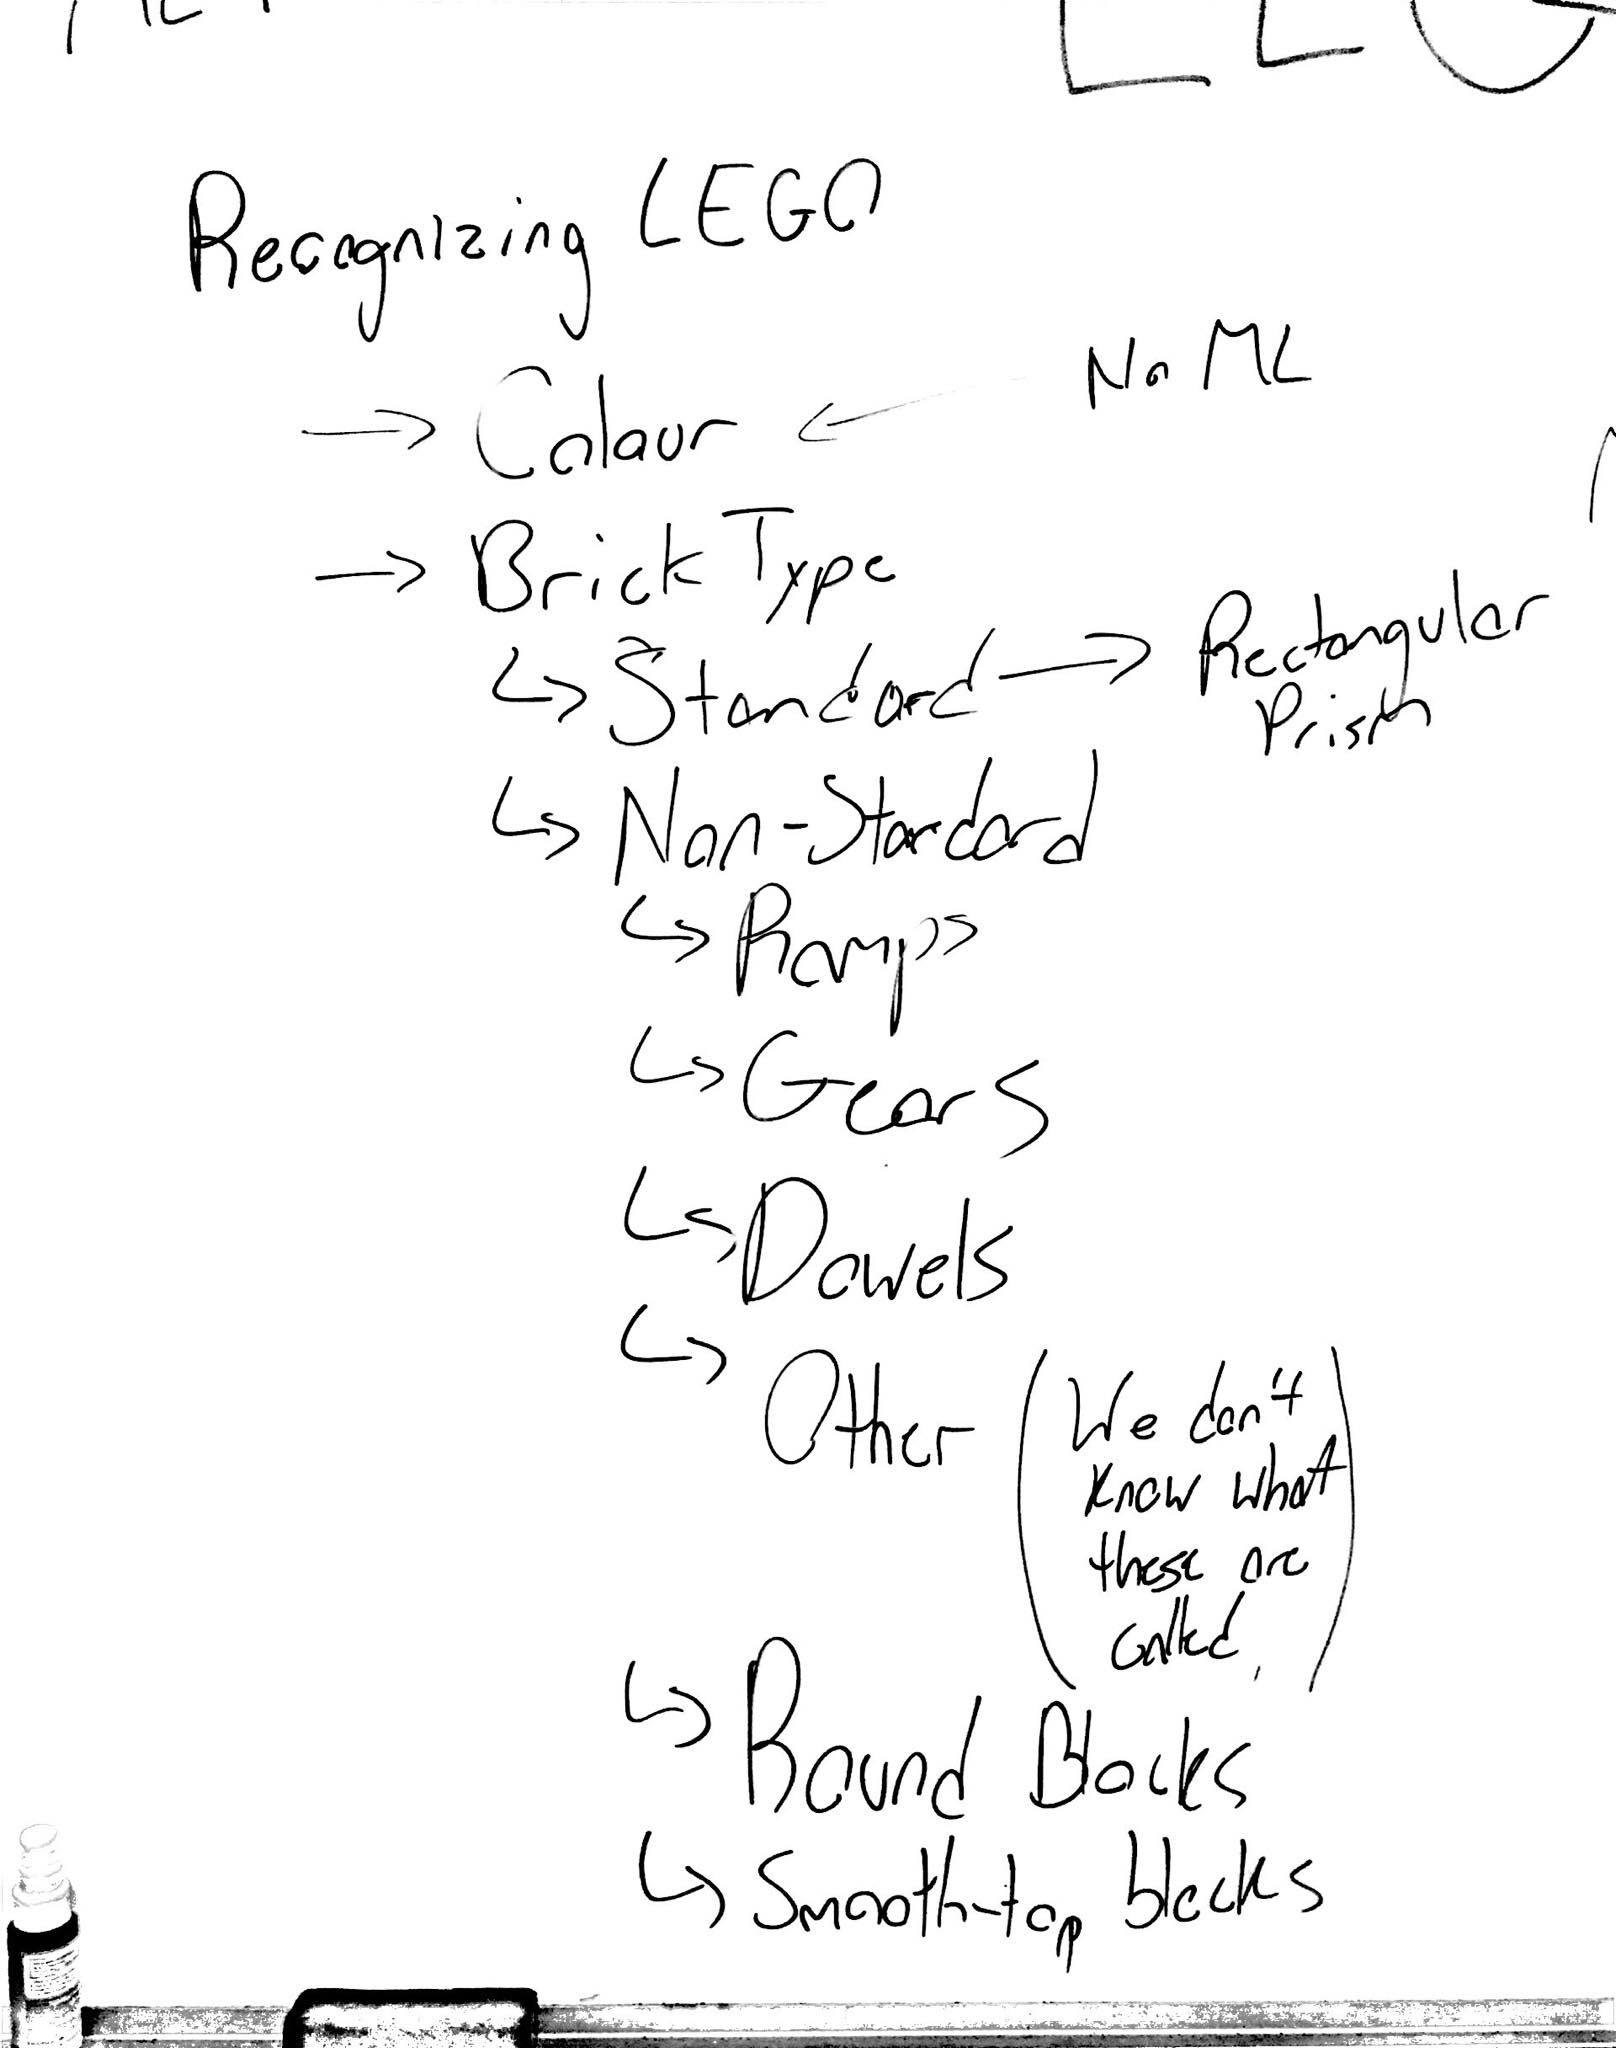 Recognizing LEGO
→ Colour ← No ML
→ Brick Type
↳ Standard → Rectangular
Prism
↳ Non-Standard
↳ Ramps
↳ Gears
↳ Dowels
↳ Other (We don't
know what
these are
called.)
↳ Round Blocks
↳ Smooth-top blocks